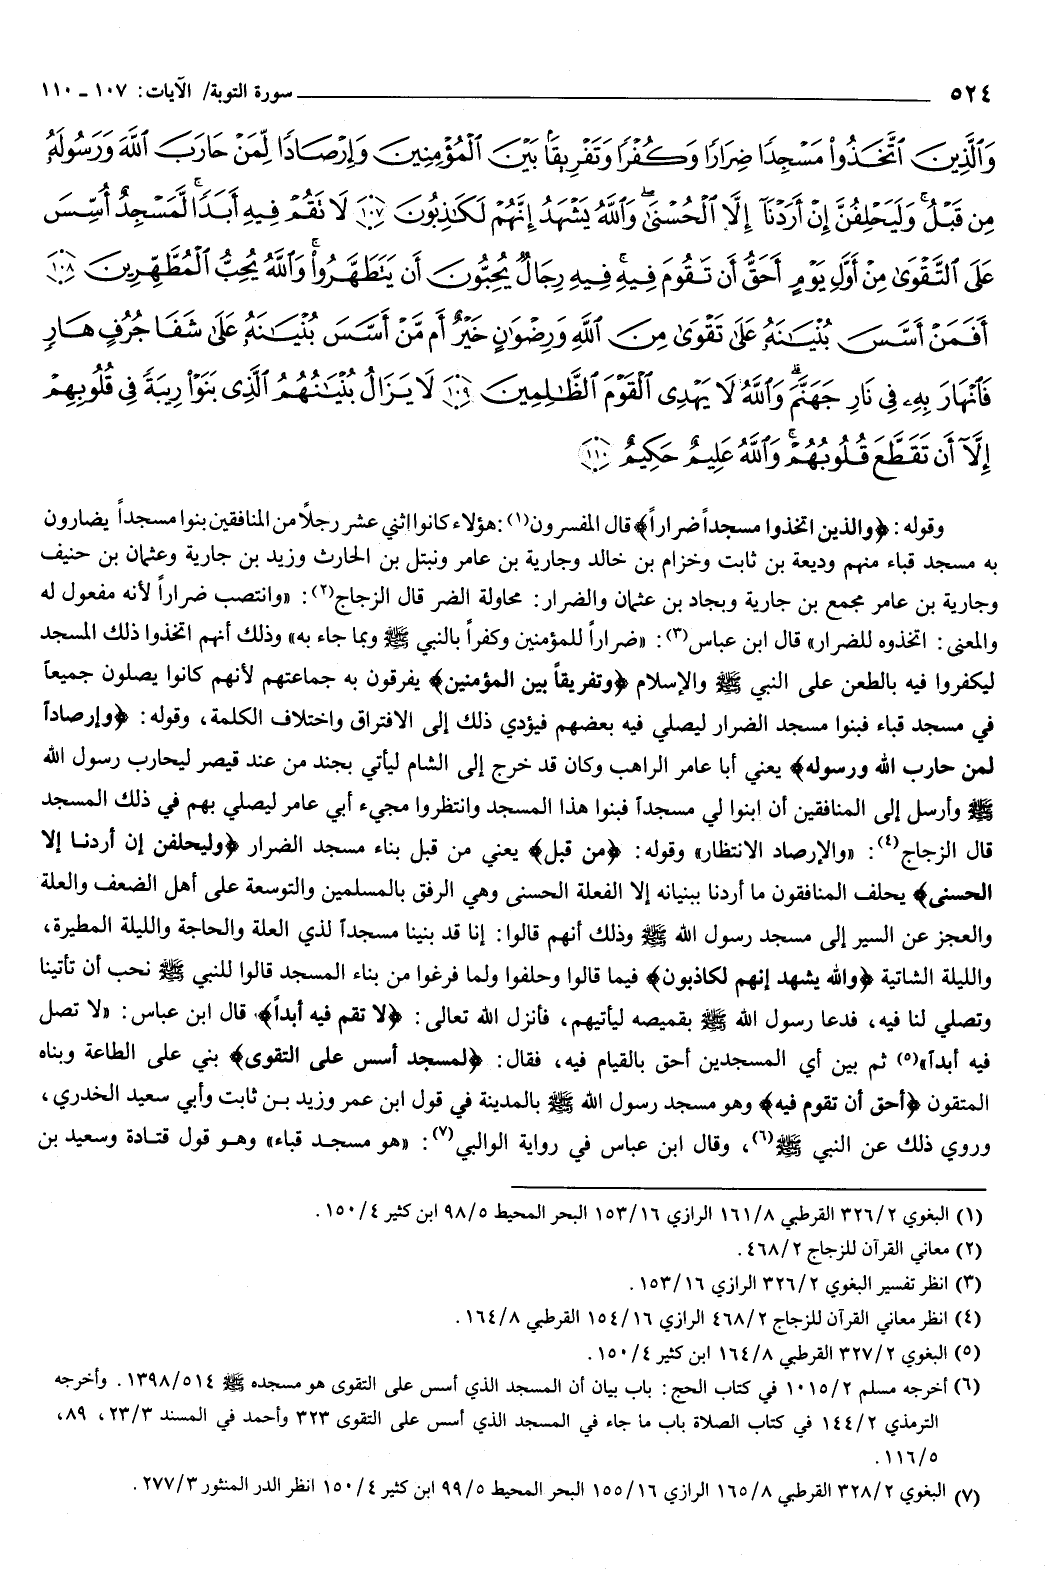 ٥٢٤ ــــــــــــــــــــ سورة التوبة/ الآيات: ١٠٧ ـ ١١٠
وَٱلَّذِينَ ٱتَّخَذُوا۟ مَسْجِدًا ضِرَارًا وَكُفْرًا وَتَفْرِيقًۢا بَيْنَ ٱلْمُؤْمِنِينَ وَإِرْصَادًا لِّمَنْ حَارَبَ ٱللَّهَ وَرَسُولَهُۥ
مِن قَبْلُ ۚ وَلَيَحْلِفُنَّ إِنْ أَرَدْنَآ إِلَّا ٱلْحُسْنَىٰ ۖ وَٱللَّهُ يَشْهَدُ إِنَّهُمْ لَكَـٰذِبُونَ ﴿١٠٧﴾ لَا تَقُمْ فِيهِ أَبَدًا ۚ لَّمَسْجِدٌ أُسِّسَ
عَلَى ٱلتَّقْوَىٰ مِنْ أَوَّلِ يَوْمٍ أَحَقُّ أَن تَقُومَ فِيهِ ۚ فِيهِ رِجَالٌ يُحِبُّونَ أَن يَتَطَهَّرُوا۟ ۚ وَٱللَّهُ يُحِبُّ ٱلْمُطَّهِّرِينَ ﴿١٠٨﴾
أَفَمَنْ أَسَّسَ بُنْيَـٰنَهُۥ عَلَىٰ تَقْوَىٰ مِنَ ٱللَّهِ وَرِضْوَٰنٍ خَيْرٌ أَم مَّنْ أَسَّسَ بُنْيَـٰنَهُۥ عَلَىٰ شَفَا جُرُفٍ هَارٍ
فَٱنْهَارَ بِهِۦ فِى نَارِ جَهَنَّمَ ۗ وَٱللَّهُ لَا يَهْدِى ٱلْقَوْمَ ٱلظَّـٰلِمِينَ ﴿١٠٩﴾ لَا يَزَالُ بُنْيَـٰنُهُمُ ٱلَّذِى بَنَوْا۟ رِيبَةً فِى قُلُوبِهِمْ
إِلَّآ أَن تَقَطَّعَ قُلُوبُهُمْ ۗ وَٱللَّهُ عَلِيمٌ حَكِيمٌ ﴿١١٠﴾
وقوله: ﴿والذين اتخذوا مسجداً ضراراً﴾ قال المفسرون(١): هؤلاء كانوا اثني عشر رجلاً من المنافقين بنوا مسجداً يضارون
به مسجد قباء منهم وديعة بن ثابت وخزام بن خالد وجارية بن عامر ونبتل بن الحارث وزيد بن جارية وعثمان بن حنيف
وجارية بن عامر مجمع بن جارية وبجاد بن عثمان والضرار: محاولة الضر قال الزجاج(٢): «وانتصب ضراراً لأنه مفعول له
والمعنى: اتخذوه للضرار» قال ابن عباس(٣): «ضراراً للمؤمنين وكفراً بالنبي ﷺ وبما جاء به» وذلك أنهم اتخذوا ذلك المسجد
ليكفروا فيه بالطعن على النبي ﷺ والإسلام ﴿وتفريقاً بين المؤمنين﴾ يفرقون به جماعتهم لأنهم كانوا يصلون جميعاً
في مسجد قباء فبنوا مسجد الضرار ليصلي فيه بعضهم فيؤدي ذلك إلى الافتراق واختلاف الكلمة، وقوله: ﴿وإرصاداً
لمن حارب الله ورسوله﴾ يعني أبا عامر الراهب وكان قد خرج إلى الشام ليأتي بجند من عند قيصر ليحارب رسول الله
ﷺ وأرسل إلى المنافقين أن ابنوا لي مسجداً فبنوا هذا المسجد وانتظروا مجيء أبي عامر ليصلي بهم في ذلك المسجد
قال الزجاج(٤): «والإرصاد الانتظار» وقوله: ﴿من قبل﴾ يعني من قبل بناء مسجد الضرار ﴿وليحلفن إن أردنا إلا
الحسنى﴾ يحلف المنافقون ما أردنا ببنيانه إلا الفعلة الحسنى وهي الرفق بالمسلمين والتوسعة على أهل الضعف والعلة
والعجز عن السير إلى مسجد رسول الله ﷺ وذلك أنهم قالوا: إنا قد بنينا مسجداً لذي العلة والحاجة والليلة المطيرة،
والليلة الشاتية ﴿والله يشهد إنهم لكاذبون﴾ فيما قالوا وحلفوا ولما فرغوا من بناء المسجد قالوا للنبي ﷺ نحب أن تأتينا
وتصلي لنا فيه، فدعا رسول الله ﷺ بقميصه ليأتيهم، فأنزل الله تعالى: ﴿لا تقم فيه أبداً﴾ قال ابن عباس: «لا تصل
فيه أبداً»(٥) ثم بين أي المسجدين أحق بالقيام فيه، فقال: ﴿لمسجد أسس على التقوى﴾ بني على الطاعة وبناه
المتقون ﴿أحق أن تقوم فيه﴾ وهو مسجد رسول الله ﷺ بالمدينة في قول ابن عمر وزيد بن ثابت وأبي سعيد الخدري،
وروي ذلك عن النبي ﷺ(٦)، وقال ابن عباس في رواية الوالبي(٧): «هو مسجد قباء» وهو قول قتادة وسعيد بن
(١) البغوي ٣٢٦/٢ القرطبي ١٦١/٨ الرازي ١٥٣/١٦ البحر المحيط ٩٨/٥ ابن كثير ١٥٠/٤.
(٢) معاني القرآن للزجاج ٤٦٨/٢.
(٣) انظر تفسير البغوي ٣٢٦/٢ الرازي ١٥٣/١٦.
(٤) انظر معاني القرآن للزجاج ٤٦٨/٢ الرازي ١٥٤/١٦ القرطبي ١٦٤/٨.
(٥) البغوي ٣٢٧/٢ القرطبي ١٦٤/٨ ابن كثير ١٥٠/٤.
(٦) أخرجه مسلم ١٠١٥/٢ في كتاب الحج: باب بيان أن المسجد الذي أسس على التقوى هو مسجده ﷺ ١٣٩٨/٥١٤. وأخرجه
الترمذي ١٤٤/٢ في كتاب الصلاة باب ما جاء في المسجد الذي أسس على التقوى ٣٢٣ وأحمد في المسند ٢٣/٣، ٨٩،
١١٦/٥.
(٧) البغوي ٣٢٨/٢ القرطبي ١٦٥/٨ الرازي ١٥٥/١٦ البحر المحيط ٩٩/٥ ابن كثير ١٥٠/٤ انظر الدر المنثور ٢٧٧/٣.